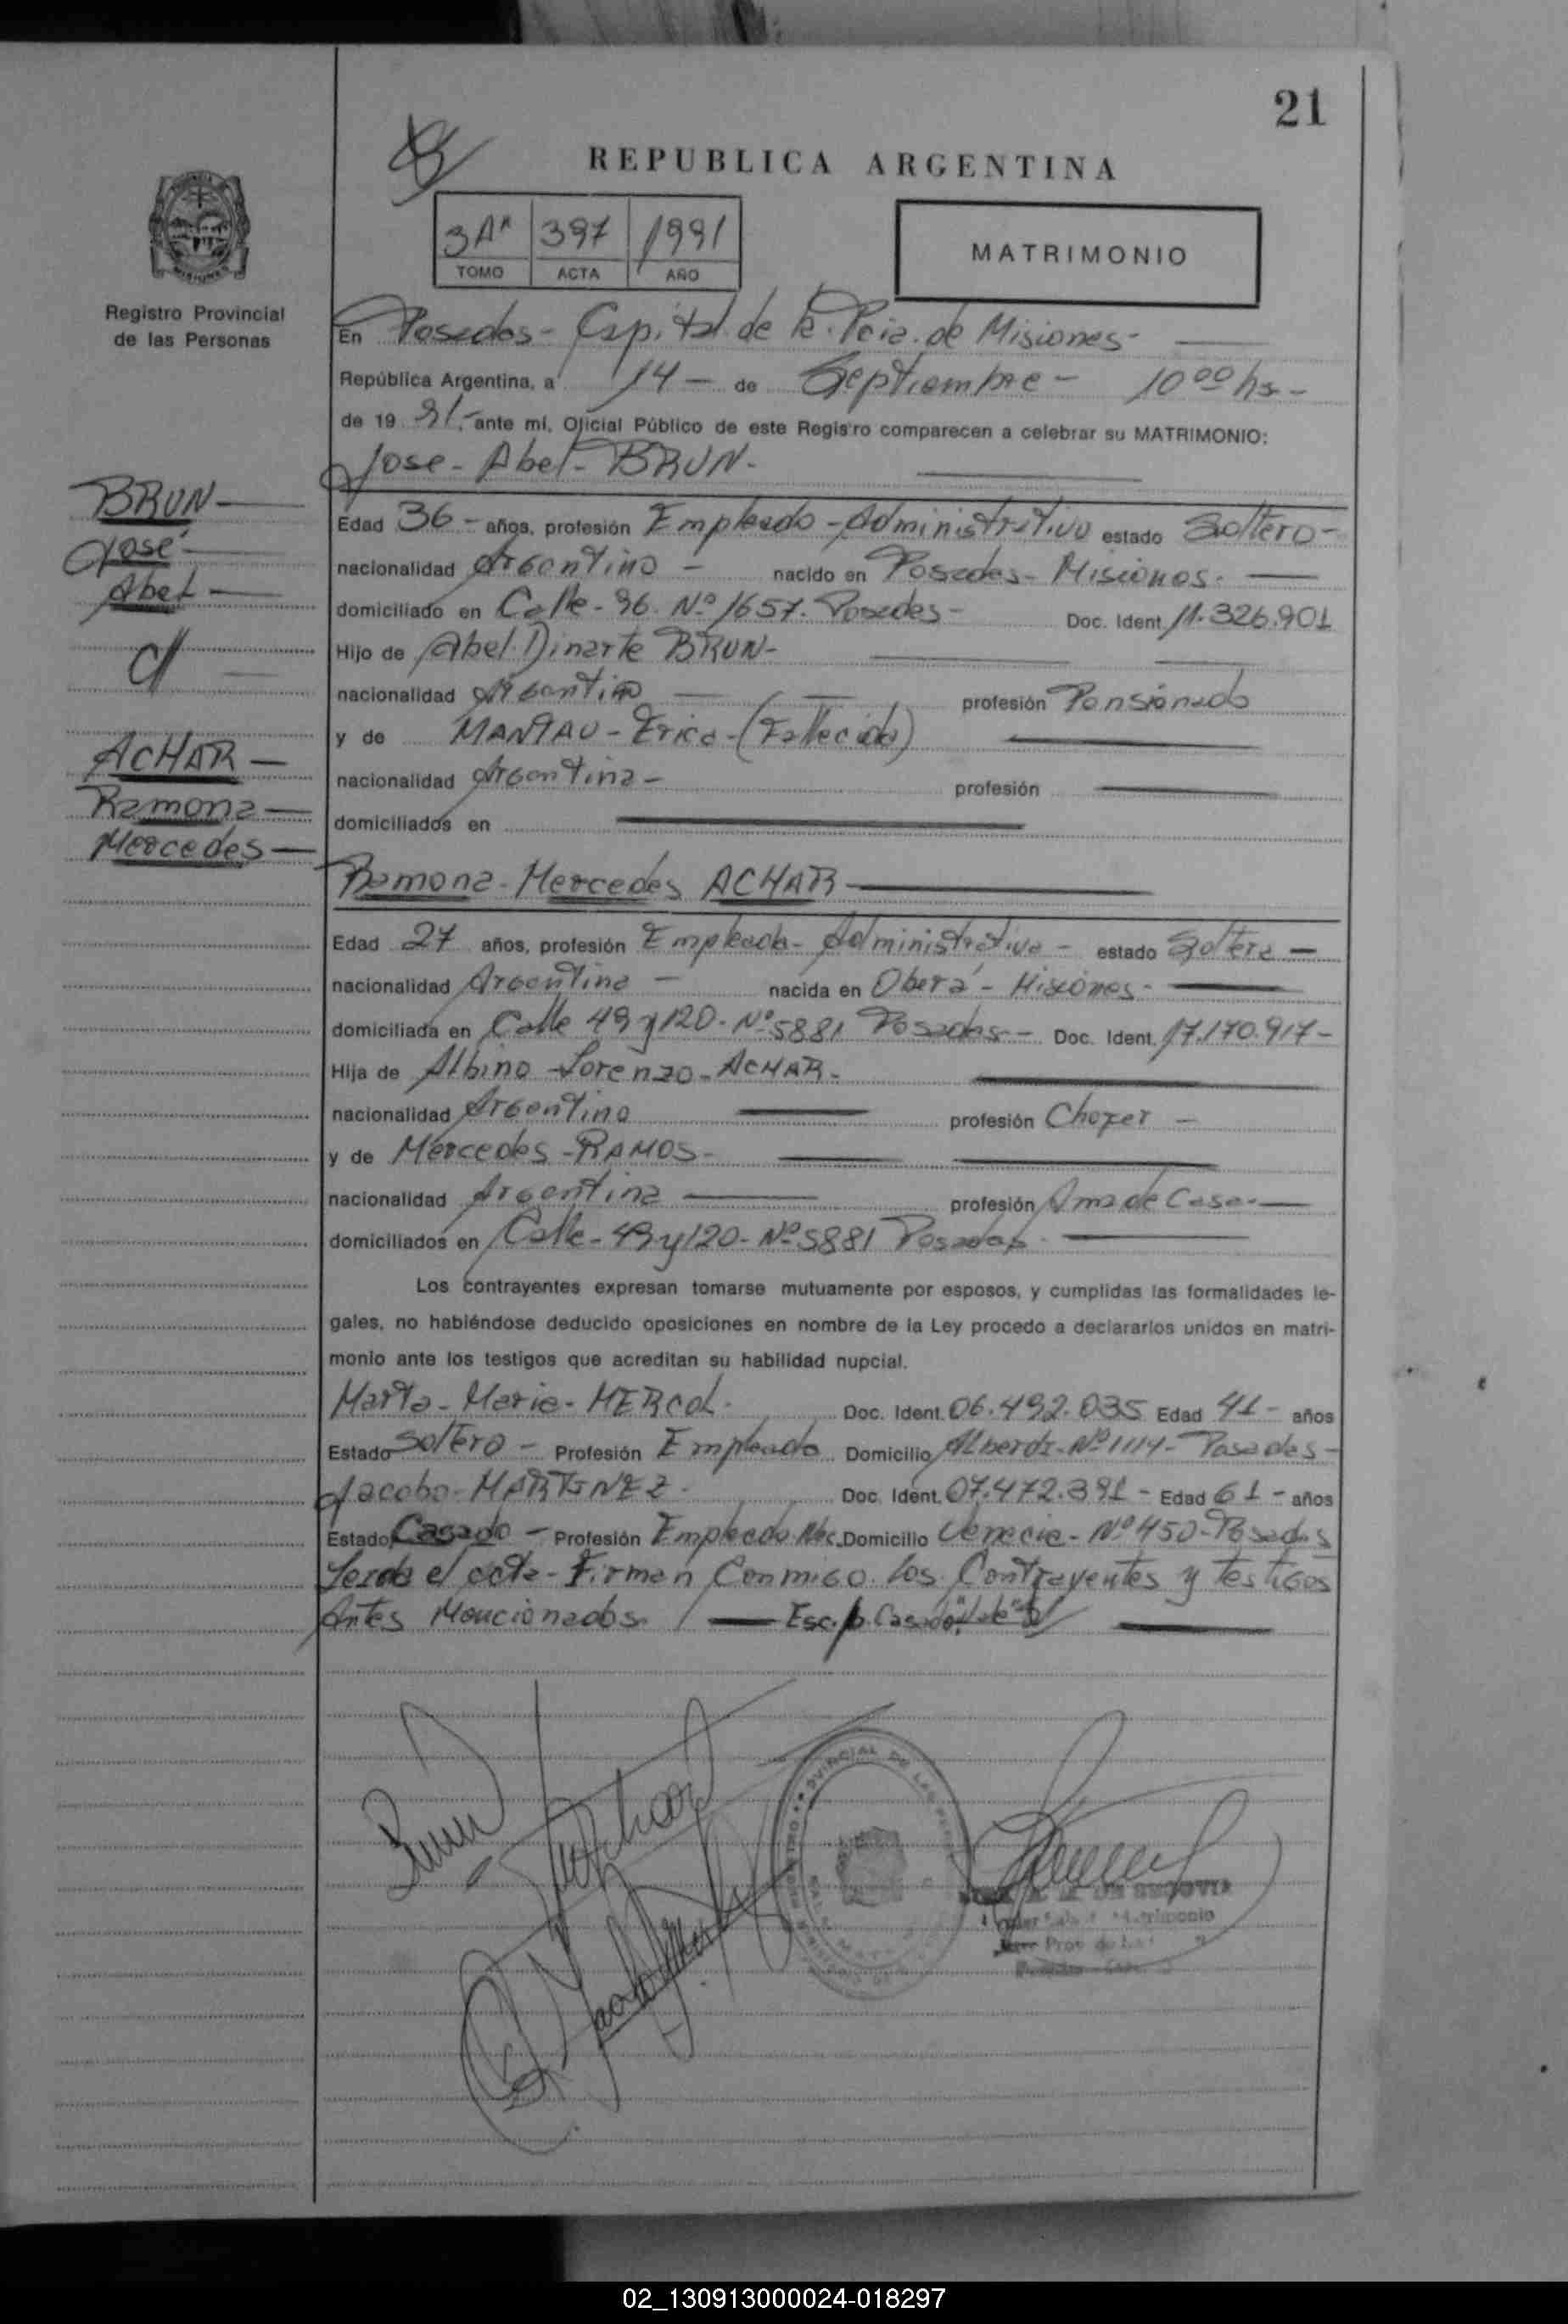 21
REPUBLICA ARGENTINA
3Aª 397 1991
TOMO ACTA AÑO
MATRIMONIO
MISIONES
Registro Provincial
de las Personas
En Posadas - Capital de la Pcia. de Misiones -
República Argentina, a 14 - de Septiembre - 10 00 hs -
de 19 91 - ante mí, Oficial Público de este Registro comparecen a celebrar su MATRIMONIO:
Jose - Abel - BRUN -
BRUN
José
Abel
c/
ACHAR
Ramona
Mercedes
Edad 36 - años, profesión Empleado - Administrativo estado Soltero -
nacionalidad Argentino - nacido en Posadas - Misiones -
domiciliado en Calle - 96 - Nº 1657 - Posadas - Doc. Ident. 11.326.901
Hijo de Abel Dinarte BRUN -
nacionalidad Argentino profesión Pensionado
y de MANTAU - Erica - (Fallecida)
nacionalidad Argentina - profesión
domiciliados en
Ramona - Mercedes ACHAR
Edad 27 años, profesión Empleada - Administrativa - estado Soltera -
nacionalidad Argentina - nacida en Oberá - Misiones -
domiciliada en Calle 49 y 120 - Nº 5881 Posadas - Doc. Ident. 17.170.917 -
Hija de Albino - Lorenzo - ACHAR -
nacionalidad Argentino profesión Chofer -
y de Mercedes - RAMOS -
nacionalidad Argentina profesión Ama de Casa -
domiciliados en Calle - 49 y 120 - Nº 5881 Posadas -
Los contrayentes expresan tomarse mutuamente por esposos, y cumplidas las formalidades le-
gales, no habiéndose deducido oposiciones en nombre de la Ley procedo a declararlos unidos en matri-
monio ante los testigos que acreditan su habilidad nupcial.
Marta - Maria - MERCOL - Doc. Ident. 06.492.035 Edad 41 - años
Estado Soltero - Profesión Empleado Domicilio Alberdi - Nº 1114 - Posadas -
Jacobo - MARTINEZ - Doc. Ident. 07.472.391 - Edad 61 - años
Estado Casado - Profesión Empleado Nac. Domicilio Venecia - Nº 450 - Posadas
Leida el acta - Firman Conmigo los Contrayentes y testigos
Antes Mencionados Esc. p. Casado "Vale"
Brun
DE SEGOVIA
Matrimonio
02_130913000024-018297